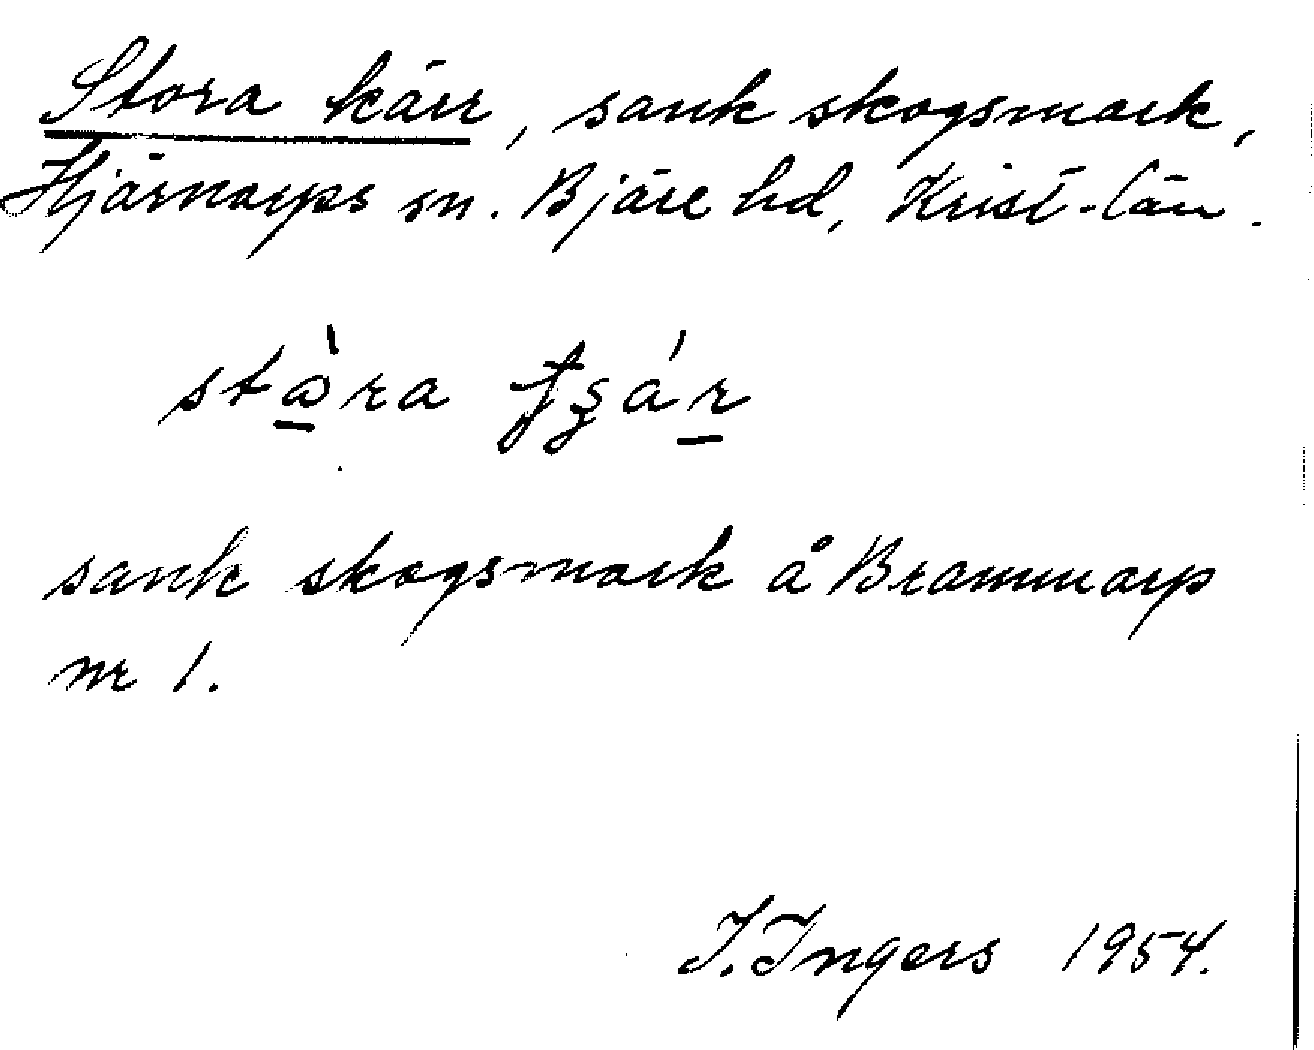 Stora kärr, sank skogsmark,
Hjärnarps sn. Bjäre hd, Krist-län.
sank skogsmark å Brammarp
nr 1.
I. Ingers 1954.